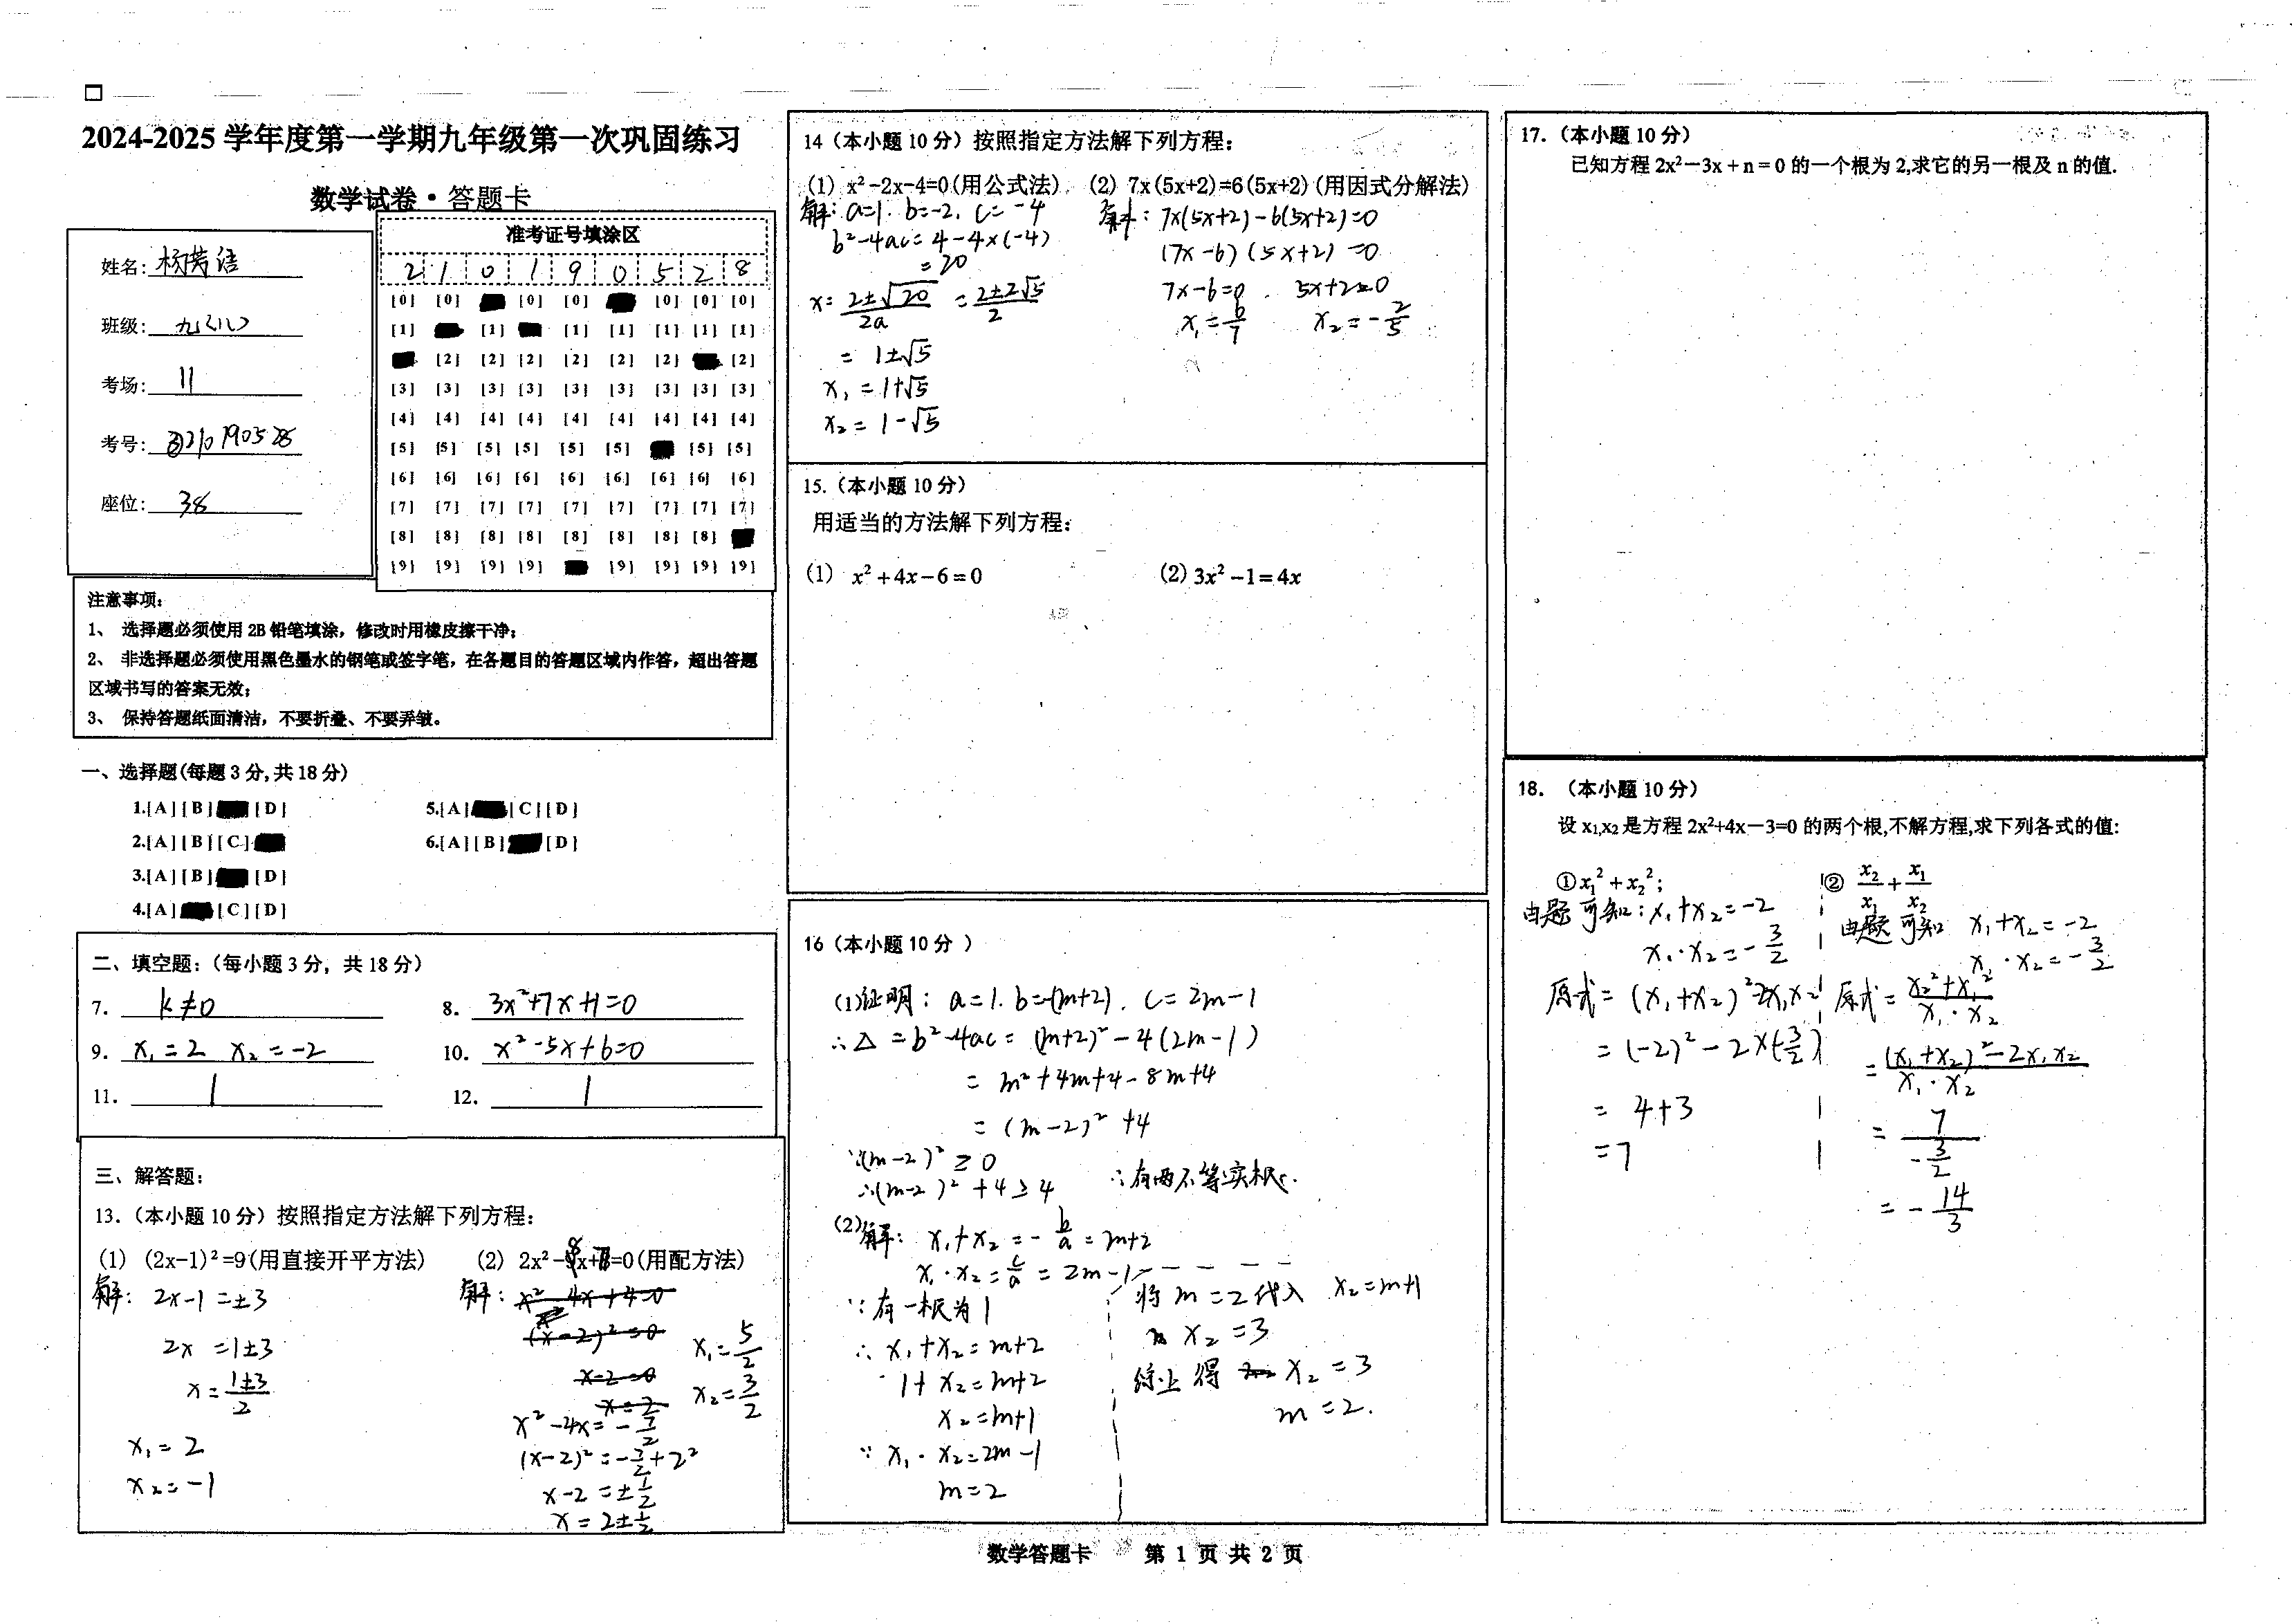 2024-2025 学年度第一学期九年级第一次巩固练习
数学试卷·答题卡
姓名：杨芳语
班级：九(八)
考场：11
考号：210190528
座位：38
准考证号填涂区
2 1 0 1 9 0 5 2 8
[0] [0] [0] [0] [0] [0] [0]
[1] [1] [1] [1] [1] [1] [1]
[2] [2] [2] [2] [2] [2] [2]
[3] [3] [3] [3] [3] [3] [3] [3] [3]
[4] [4] [4] [4] [4] [4] [4] [4] [4]
[5] [5] [5] [5] [5] [5] [5] [5]
[6] [6] [6] [6] [6] [6] [6] [6] [6]
[7] [7] [7] [7] [7] [7] [7] [7] [7]
[8] [8] [8] [8] [8] [8] [8] [8]
[9] [9] [9] [9] [9] [9] [9] [9]
注意事项：
1、 选择题必须使用 2B 铅笔填涂，修改时用橡皮擦干净；
2、 非选择题必须使用黑色墨水的钢笔或签字笔，在各题目的答题区域内作答，超出答题
区域书写的答案无效；
3、 保持答题纸面清洁，不要折叠、不要弄皱。
一、选择题(每题 3 分,共 18 分)
1.[A][B] [D] 5.[A] [C][D]
2.[A][B][C] 6.[A][B] [D]
3.[A][B] [D]
4.[A] [C][D]
二、填空题：（每小题 3 分，共 18 分）
7. k≠0 8. 3x²+7x+1=0
9. x₁=2 x₂=-2 10. x²-5x+6=0
11. 1 12. 1
三、解答题：
13.（本小题 10 分）按照指定方法解下列方程：
(1) (2x-1)²=9(用直接开平方法)
解：2x-1=±3
2x=1±3
x=(1±3)/2
x₁=2
x₂=-1
(2) 2x²-8x+ =0(用配方法)
解：x²-4x+4=0
(x-2)²=0
x-2=0
x=2
x²-4x=- /2
(x-2)²=- /2+2²
x-2=±1/2
x=2±1/2
x₁=5/2
x₂=3/2
14（本小题 10 分）按照指定方法解下列方程：
(1) x²-2x-4=0(用公式法)
解：a=1. b=-2. c=-4
b²-4ac=4-4×(-4)
=20
x=(2±√20)/2a =(2±2√5)/2
=1±√5
x₁=1+√5
x₂=1-√5
(2) 7x(5x+2)=6(5x+2)(用因式分解法)
解：7x(5x+2)-6(5x+2)=0
(7x-6)(5x+2)=0
7x-6=0. 5x+2=0
x₁=6/7 x₂=-2/5
15.（本小题 10 分）
用适当的方法解下列方程：
(1) x²+4x-6=0 (2) 3x²-1=4x
16（本小题 10 分 ）
(1)证明：a=1. b=-(m+2). c=2m-1
∴△=b²-4ac=(m+2)²-4(2m-1)
=m²+4m+4-8m+4
=(m-2)²+4
∵(m-2)²≥0
∴(m-2)²+4≥4 ∴有两不等实根.
(2)解：x₁+x₂=-b/a=m+2
x₁·x₂=c/a=2m-1
∵有一根为1
∴x₁+x₂=m+2
1+x₂=m+2
x₂=m+1
∵x₁·x₂=2m-1
m=2
将m=2代入 x₂=m+1
x₂=3
综上得 x₂=3
m=2.
17.（本小题 10 分）
已知方程 2x²-3x+n=0 的一个根为 2,求它的另一根及 n 的值.
18. （本小题 10 分）
设 x₁,x₂ 是方程 2x²+4x-3=0 的两个根,不解方程,求下列各式的值:
①x₁²+x₂²;
由题可知：x₁+x₂=-2
x₁·x₂=-3/2
原式=(x₁+x₂)²-2x₁x₂
=(-2)²-2×(-3/2)
=4+3
=7
② x₂/x₁+x₁/x₂
由题可知 x₁+x₂=-2
x₁·x₂=-3/2
原式=(x₂²+x₁²)/(x₁·x₂)
=((x₁+x₂)²-2x₁x₂)/(x₁·x₂)
=7/(-3/2)
=-14/3
数学答题卡 第 1 页 共 2 页